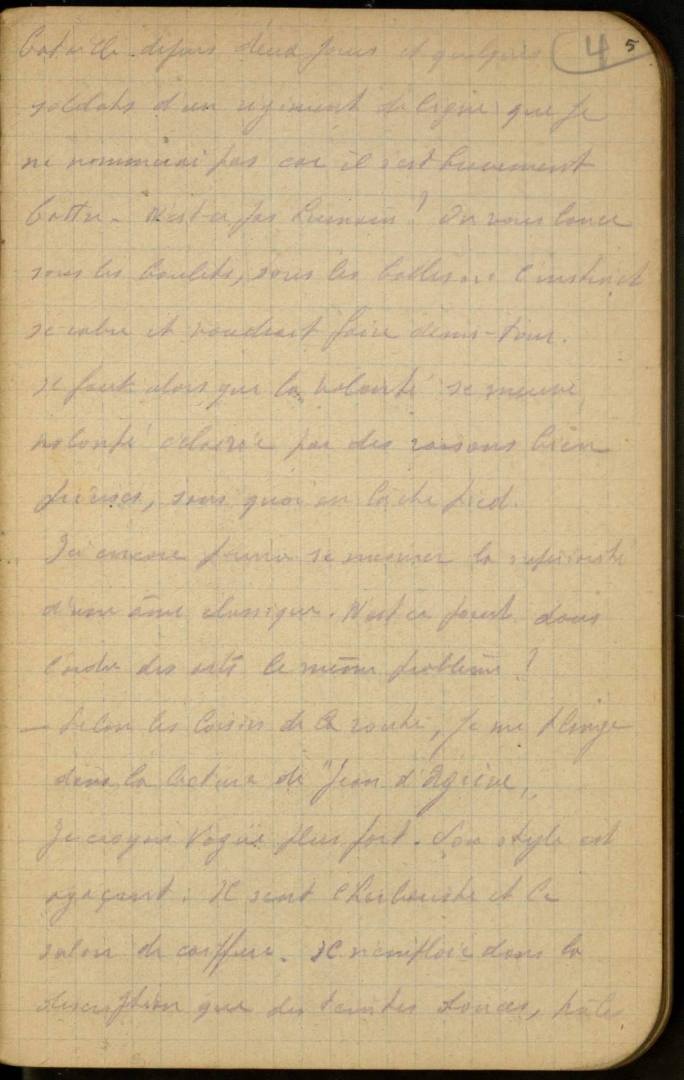 bataille depuis deux jours et quelques 4 5
soldats d'un régiment de ligne que je
ne nommerai pas car il s'est bravement
battu. N'est-ce pas humain ? On vous lance
sous les boulets, sous les balles... l'instinct
se cabre et voudrait faire demi-tour.
Il faut alors que la volonté se meuve,
volonté éclairée par des raisons bien
précises, sans quoi on lâche pied.
Ici encore pourra se mesurer la supériorité
d'une âme classique. N'est ce point dans
l'ordre des arts le même problème ?
— Selon les loisirs de la route, je me plonge
dans la lecture de "Jean d'Agrève"
Je croyais Vogüé plus fort. Son style est
agaçant. Il sent l'herboriste et le
salon de coiffure. Il n'emploie dans la
description que des teintes douces,